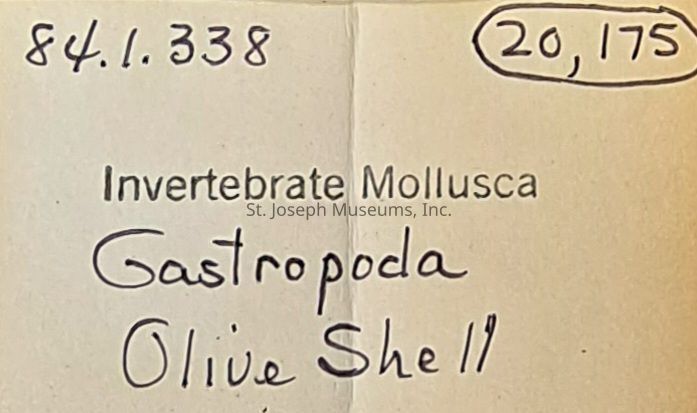 84.1.338 20,175
Invertebrate Mollusca
St. Joseph Museums, Inc.
Gastropoda
Olive Shell